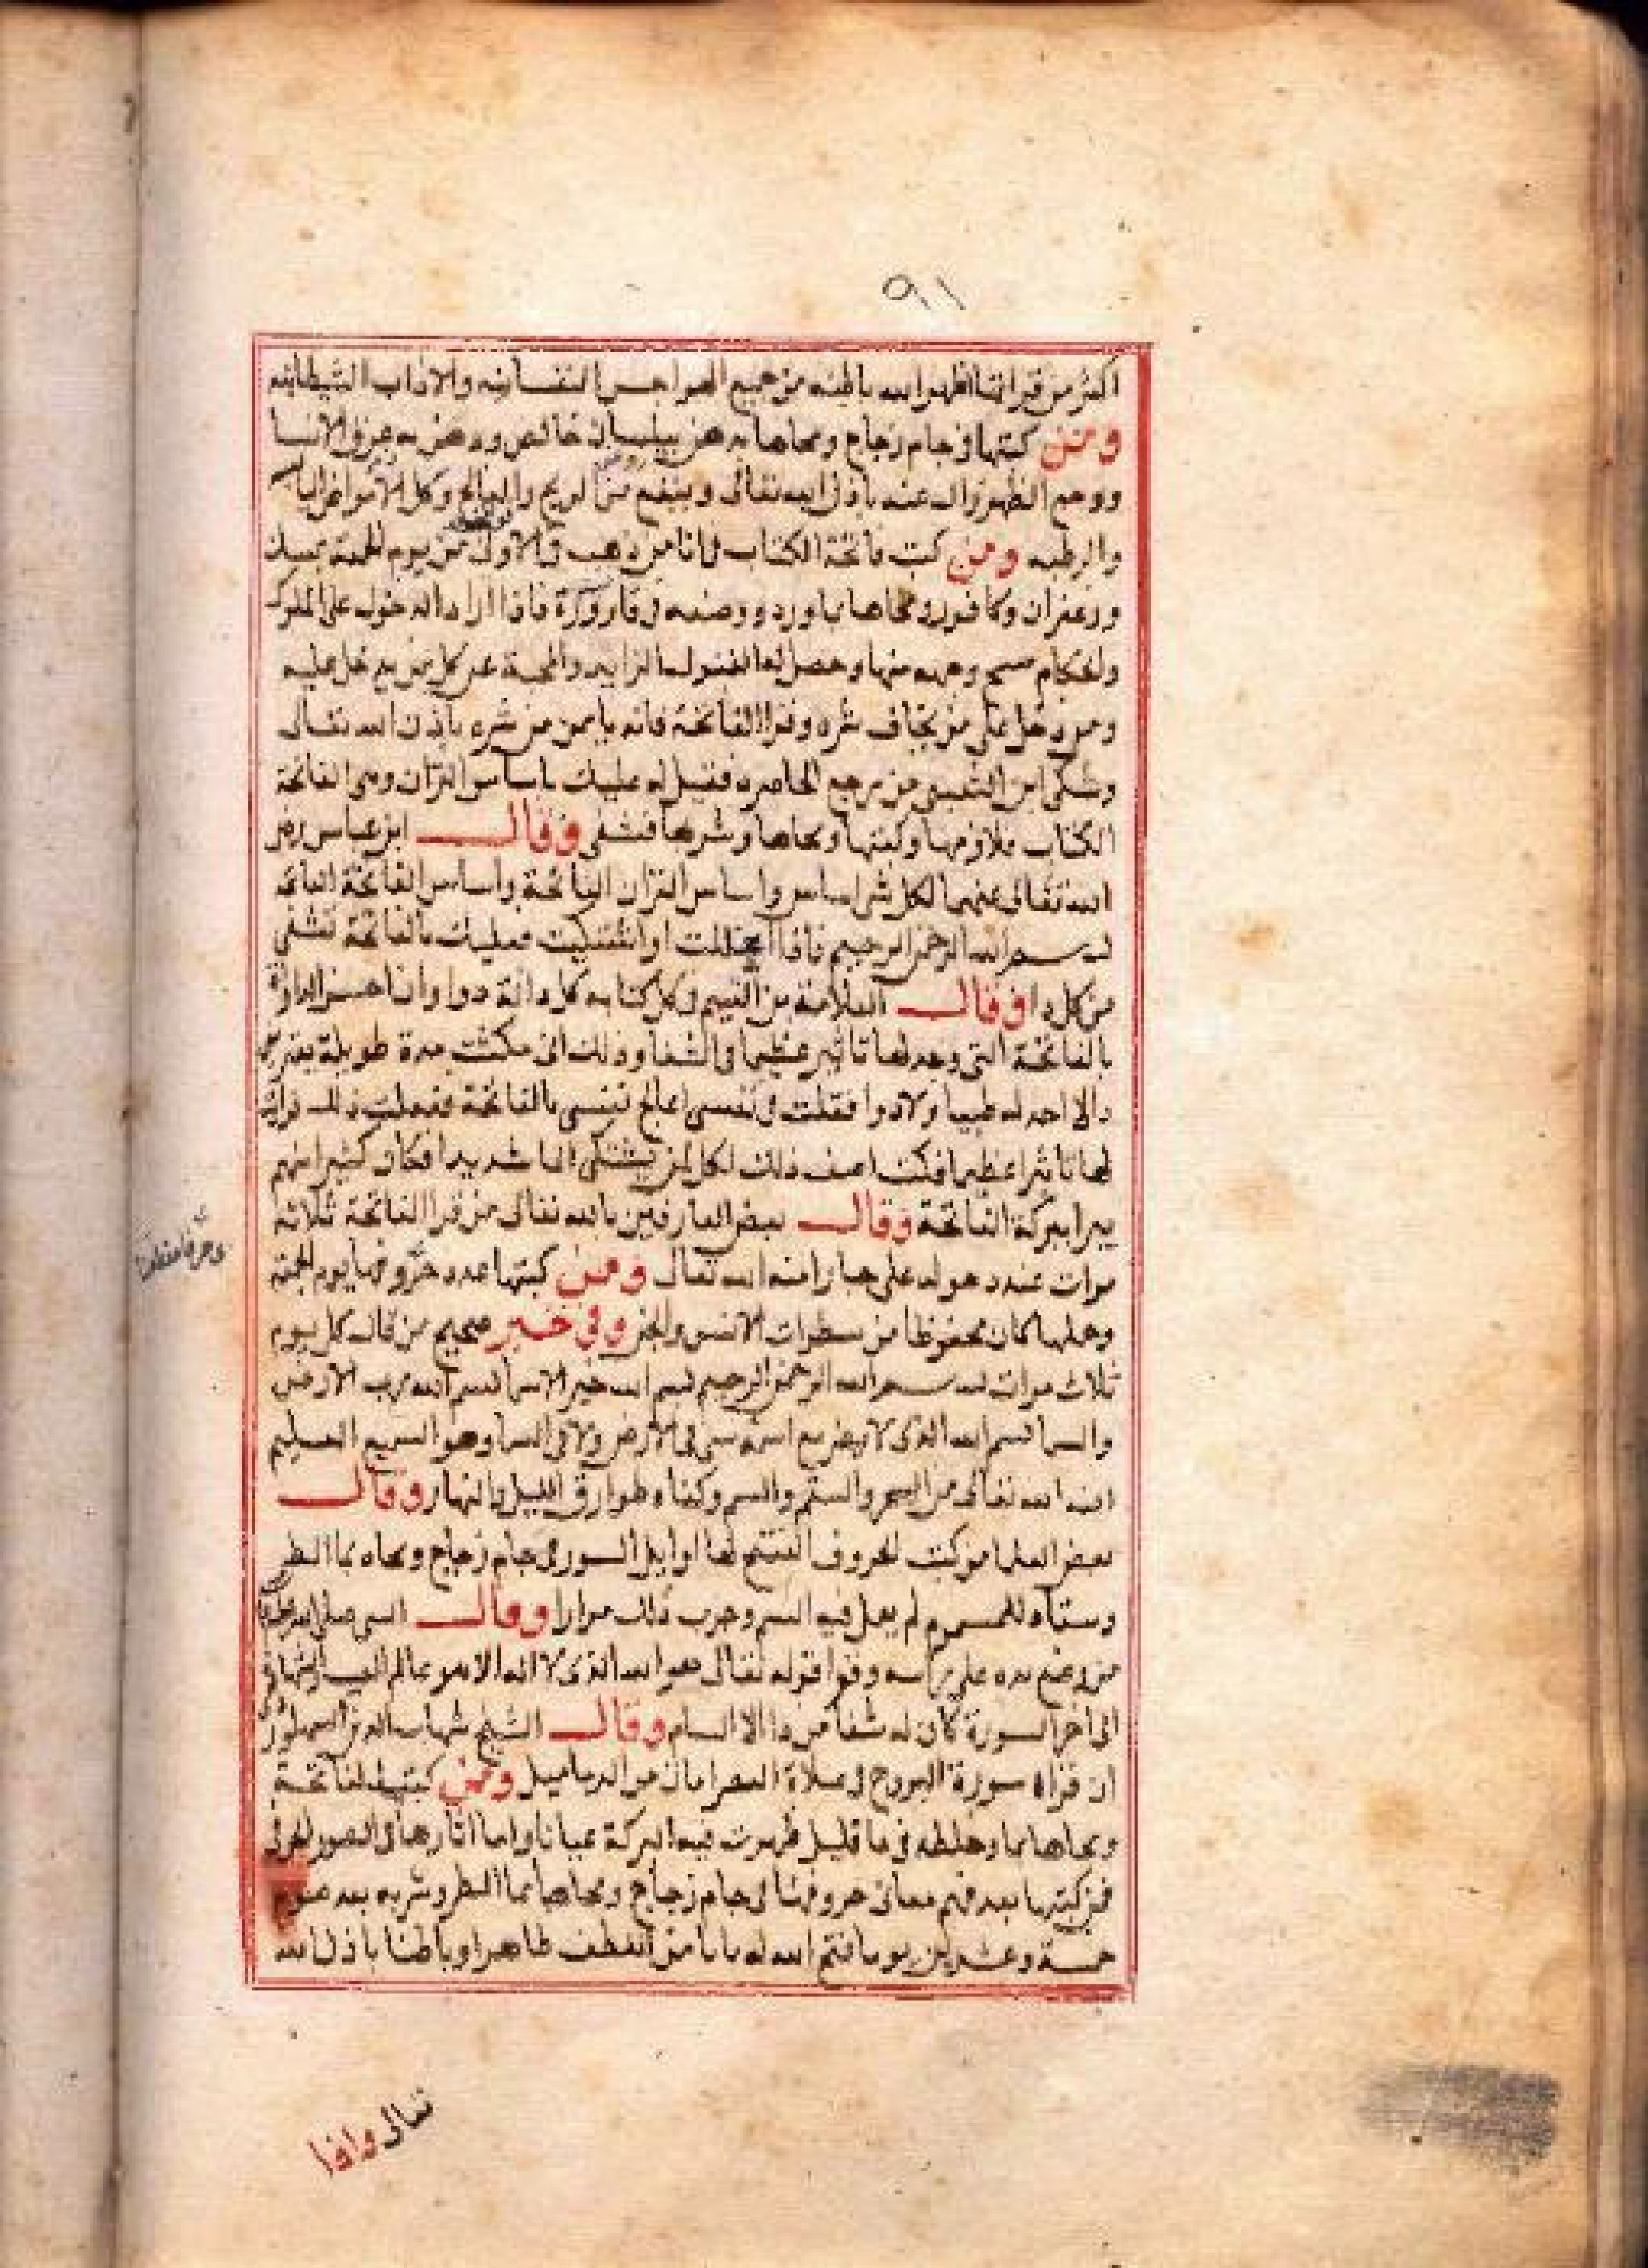 ٩١
أكثر من قراتها اظهر الله باطنه من جميع الهواجس النفسانيه والاداب الشيطانيه
ومن كتبها في جام زجاج ومحاها بدهن بيلسان خالص ودهن به عرق الانسا
ووجع الظهر زال عنه باذن الله تعالى وينفع من الريح والفالج وكل الامراض اليابسة
والرطبه ومن كتب فاتحة الكتاب في انا من ذهب في الاولى من يوم الجمعة بمسك
وزعفران وكافور ومحاها بماورد ووضعه في قارورة فاذا اراد الدخول على الملوك
والحكام مسح وجهه منها وحصل له القبول الزايد والمحبة عند كل من يدخل عليه
ومن دخل على من يخاف شره وقرا الفاتحة فانه يامن من شره باذن الله تعالى
وشكى ابن الشعبي من وجع الخاصره فقيل له عليك باساس القران وهي الفاتحة
الكتاب فلازمها وكتبها ومحاها وشربها فشفى وقال ابن عباس رضي
الله تعالى عنهما لكل شي اساس واساس القران الفاتحة واساس الفاتحة
بسم الله الرحمن الرحيم فاذا اعتللت او اشتكيت فعليك بالفاتحة تشفى
من كل دا وقال العلامة بن القيم في كل كتابه كل دا له دوا وان احسن المداواة
بالفاتحة التي وجد لها تاثير عظيما في الشفا وذلك اني مكثت مدة طويلة يعتريني
دا لا اجد له طبيبا ولا دوا فقلت في نفسي اعالج نفسي بالفاتحة ففعلت ذلك فرايت
لها تاثيرا عظيما فكنت اصف ذلك لكل من يشتكي الما شديدا فكان كثيرا منهم
يبرا ببركة الفاتحة وقال بعض العارفين بالله تعالى من قرا الفاتحة ثلاثه
مرات عند دخوله على جبار امنه الله تعال ومن كتبها عدد حروفها يوم الجمعة
وحملها كان محفوظا من سطوات الانس والجن وفي خبر صحيح من قال كل يوم
ثلاث مرات بسم الله الرحمن الرحيم بسم الله خير الاسما بسم الله رب الارض
والسما بسم الله الذي لا يضر مع اسمه شي في الارض ولا في السما وهو السميع العليم
امنه الله تعالى من السحر والسقم والسم وكفاه طوارق الليل والنهار وقال
بعض العلما من كتب الحروف المفتتح لها اوايل السور في جام زجاج ومحاه بما المطر
وسقاه للمسموم لم يعمل فيه السم وجرب ذلك مرارا وقال النبي صلى الله
من وضع يده على راسه وقرا قوله تعالى هو الله الذي لا اله الا هو عالم الغيب والشهادة
الى اخر السورة كان له شفا من دا الا السام وقال الشيخ شهاب الدين السهروردي
ان قراة سورة البروج في صلاة العصر امان من الدماميل ومن كتب الفاتحة
ومحاها بما وخلطه في ما قليل ظهرت فيه البركة عيانا واما اثارها في الصور
فمن كتبها بعد فهم معاني حروفها في جام زجاج ومحاها بما المطر وشربه بعد صوم
خمسة وعشرين يوما فتح الله له بابا من اللطف ظاهرا وباطنا باذن الله
تعالى واذا